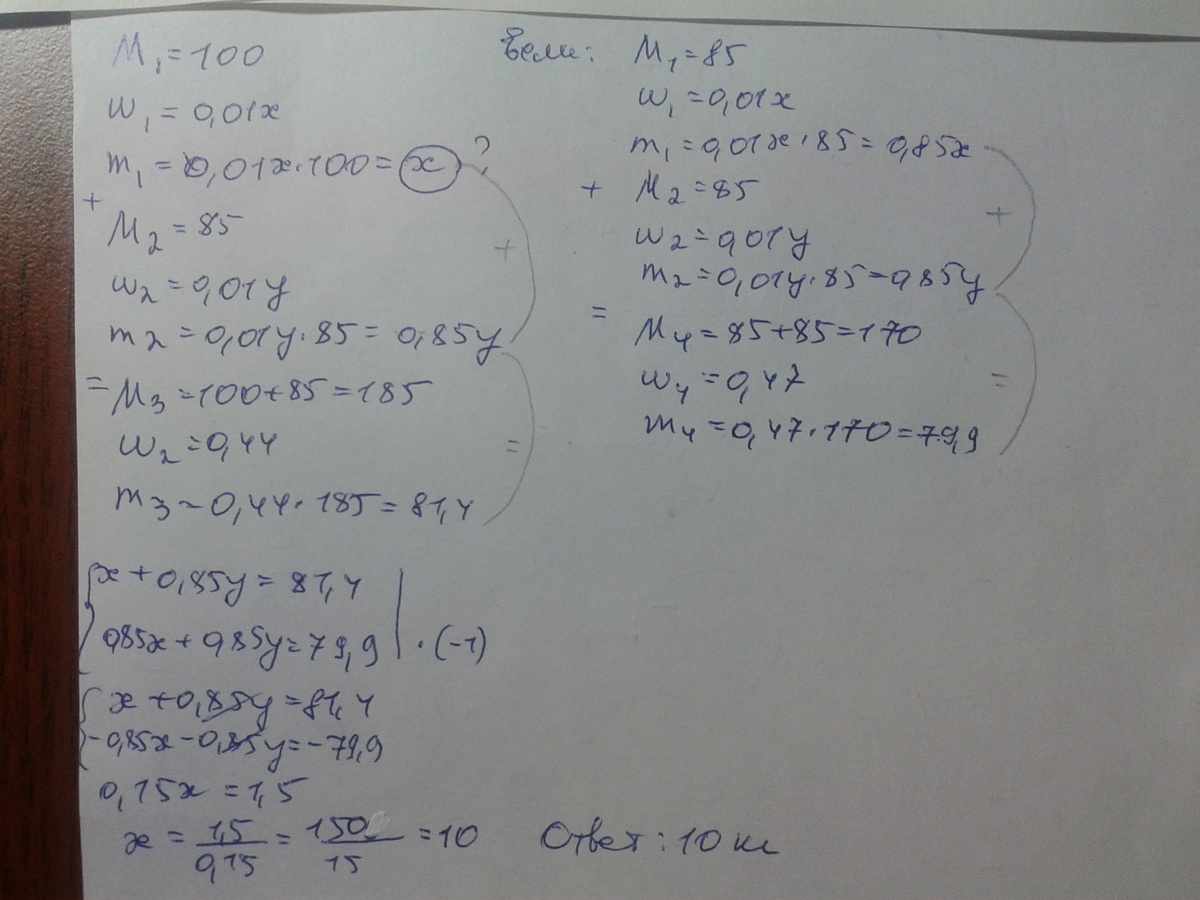 M₁ = 100
w₁ = 0,01x
m₁ = 0,01x·100 = x ?
+
M₂ = 85
w₂ = 0,01y
m₂ = 0,01y·85 = 0,85y
+
= M₃ = 100+85 = 185
w₂ = 0,44
=
m₃ = 0,44·185 = 81,4
Если: M₁ = 85
w₁ = 0,01x
m₁ = 0,01x·85 = 0,85x
+ M₂ = 85
+
w₂ = 0,01y
m₂ = 0,01y·85 = 0,85y
= M₄ = 85+85 = 170
w₄ = 0,47
=
m₄ = 0,47·170 = 79,9
{ x + 0,85y = 81,4
0,85x + 0,85y = 79,9 | ·(-1)
{ x + 0,85y = 81,4
-0,85x - 0,85y = -79,9
0,15x = 1,5
x = 1,5/0,15 = 150/15 = 10
Ответ: 10 кг